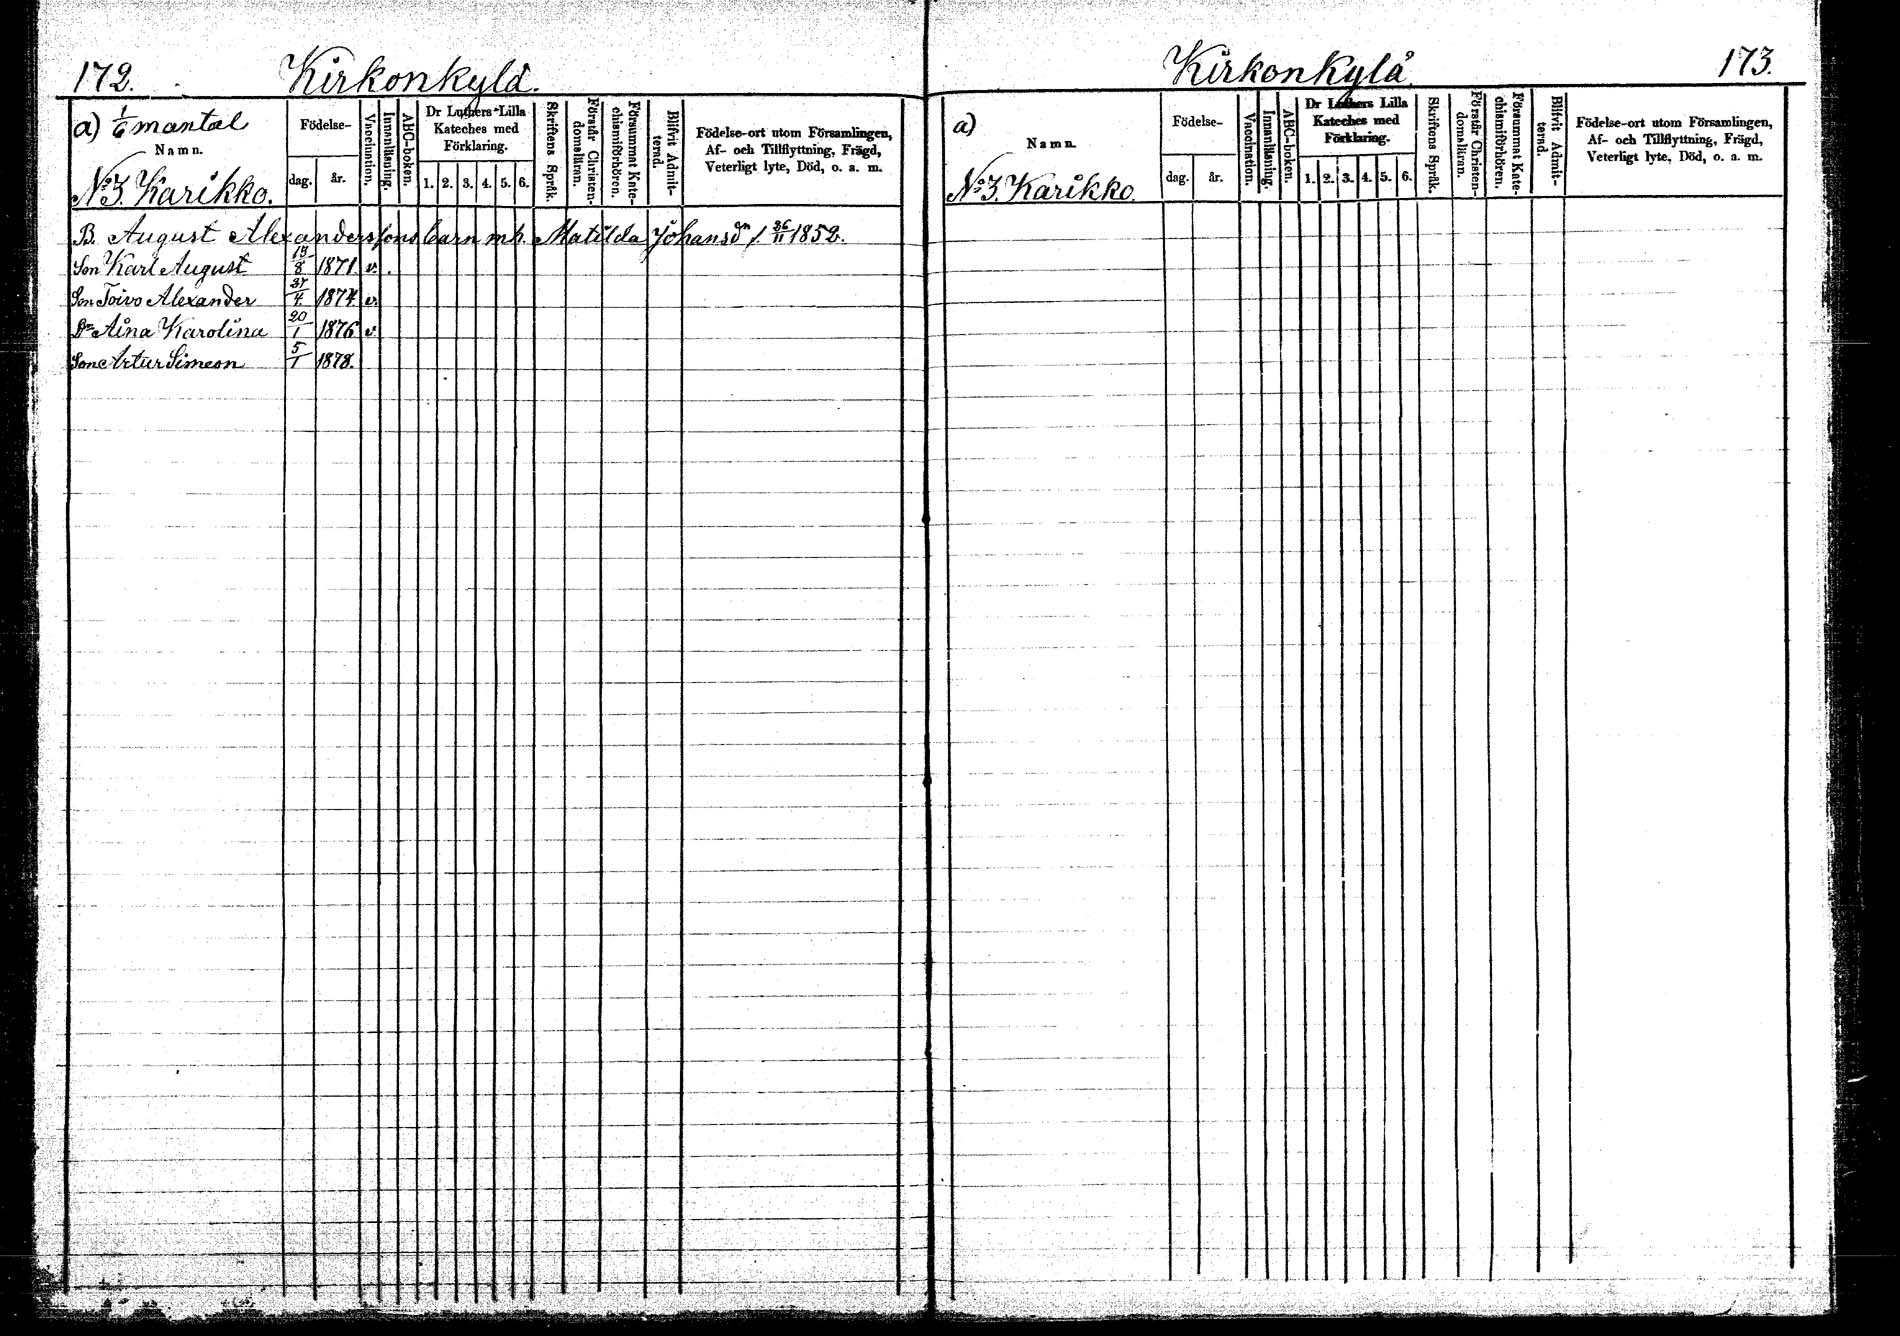 172. Kirkonkylä.
a) 1/6 mantal
Namn.
No 3. Karikko.
Födelse-
dag. år.
Vaccination.
Innanläsning.
ABC-boken.
Dr Luthers Lilla
Kateches med
Förklaring.
1. 2. 3. 4. 5. 6.
Skriftens Språk.
Förstår Christen-
domsläran.
Försummat Kate-
chismiförhören.
Blifvit Admit-
terad.
Födelse-ort utom Församlingen,
Af- och Tillflyttning, Frägd,
Veterligt lyte, Död, o. a. m.
B. August Alexanderssons barn m h. Matilda Johansdr f. 26/11 1852.
Son Karl August 15/8 1871 v.
Son Toivo Alexander 27/4 1874 v.
Dr Aina Karolina 20/1 1876 v.
Son Artur Simeon 5/1 1878.
Kirkonkylä 173.
a)
Namn.
No 3. Karikko.
Födelse-
dag. år.
Vaccination.
Innanläsning.
ABC-boken.
Dr Luthers Lilla
Kateches med
Förklaring.
1. 2. 3. 4. 5. 6.
Skriftens Språk.
Förstår Christen-
domsläran.
Försummat Kate-
chismiförhören.
Blifvit Admit-
terad.
Födelse-ort utom Församlingen,
Af- och Tillflyttning, Frägd,
Veterligt lyte, Död, o. a. m.